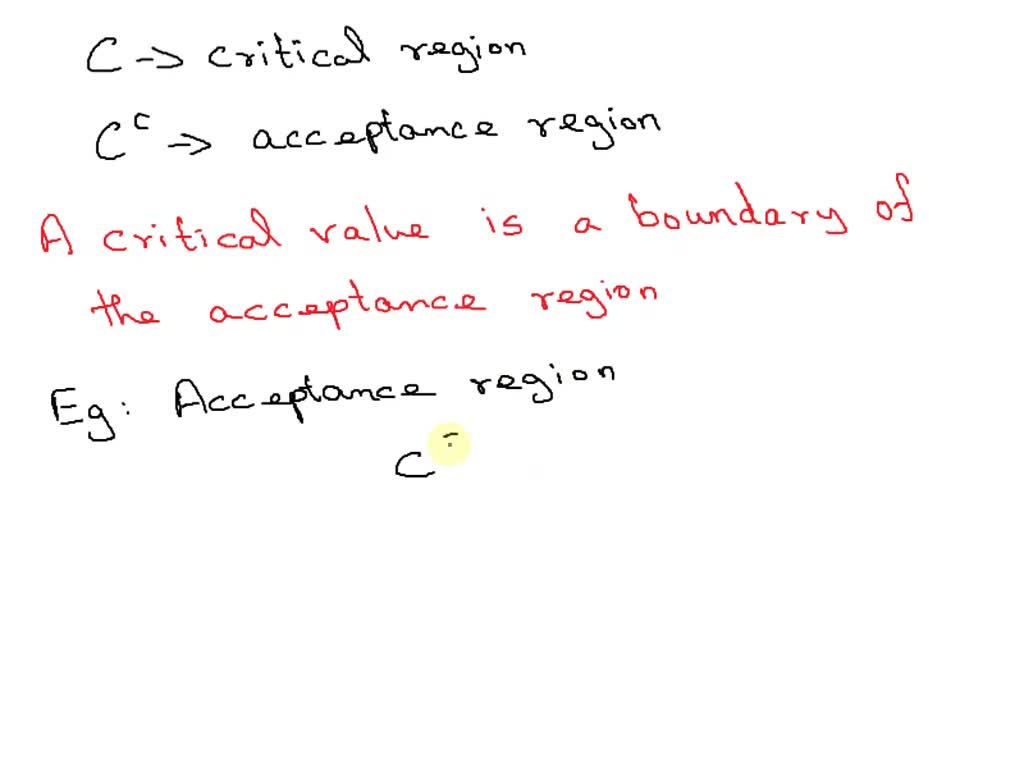 C → critical region
Cᶜ → acceptance region
A critical value is a boundary of
the acceptance region
Eg: Acceptance region
C